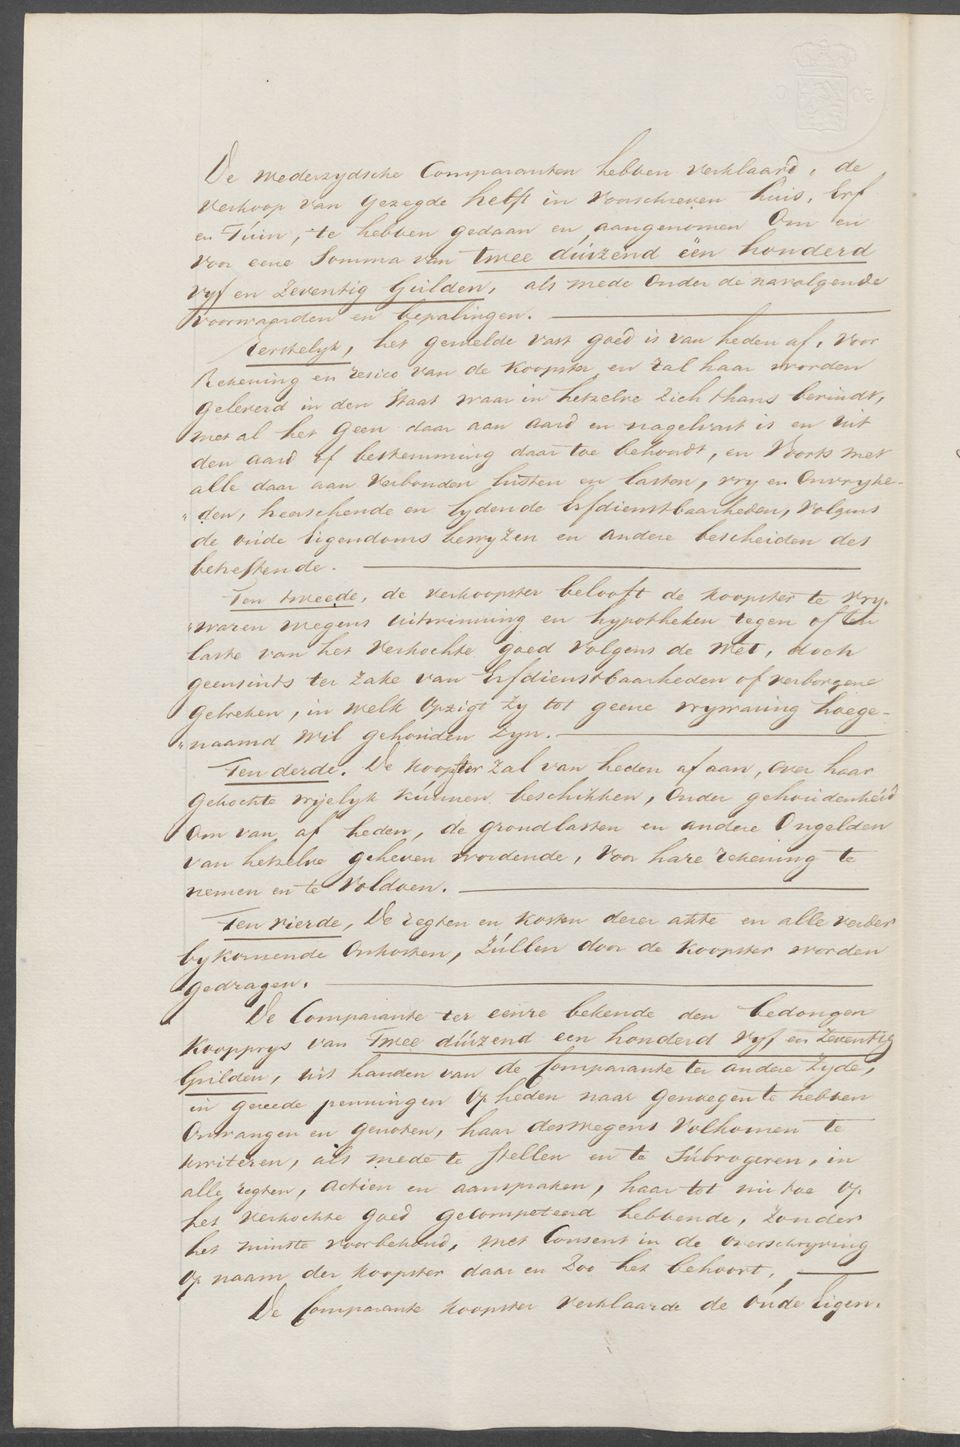 De wederzydsche Comparanten hebben verklaard, de
verkoop van gezegde helft in voorschreven huis, Erf
en Tuin, te hebben gedaan en aangenomen Om en
voor eene Somma van twee duizend een honderd
vyf en Zeventig Gulden, als mede onder de navolgende
voorwaarden en bepalingen.
Eerstelyk, het gemelde vast goed is van heden af, voor
Rekening en resico van de Koopster en zal haar worden
geleverd in den Staat waar in hetzelve zich thans bevindt,
met al het geen daar aan aard en nagelvast is en uit
den aard of bestemming daar toe behoort, en voorts met
alle daar aan verbonden lusten en lasten, vry en Onvryhe-
"den, heerschende en lydende Erfdienstbaarheden, volgens
de oude Eigendoms bewyzen en andere bescheiden des
betreffende.
Ten tweede, de verkoopster belooft de koopster te vry-
"waren wegens uitwinning en hypotheken tegen of ten
laste van het verkochte goed volgens de Wet, doch
geensints ter zake van Erfdienstbaarheden of verborgene
gebreken, in welk opzigt zy tot geene vrywaring hoege-
"naamd wil gehouden zyn.
Ten derde. De koopster zal van heden af aan, over haar
gekochte vrijelyk kunnen beschikken, onder gehoudenheid
om van af heden, de grondlasten en andere Ongelden
van hetzelve geheven wordende, voor hare rekening te
nemen en te voldoen.
Ten vierde, De regten en kosten dezer akte en alle verder
bykomende Onkosten, zullen door de koopster worden
gedragen.
De Comparante ter eenre bekende den bedongen
Koopprys van Twee duizend een honderd vyf en Zeventig
Gulden, uit handen van de Comparante ter andere zyde,
in gereede penningen op heden naar genoegen te hebben
Ontvangen en genoten, haar deswegens volkomen te
kwiteren, als mede te stellen en te Subrogeren, in
alle regten, actien en aanspraken, haar tot nu toe op
het verkochte goed gecompeteerd hebbende, zonder
het minste voorbehoud, met Consent in de overschryving
op naam der koopster daar en zoo het behoort.
De Comparante koopster verklaarde de oude Eigen-